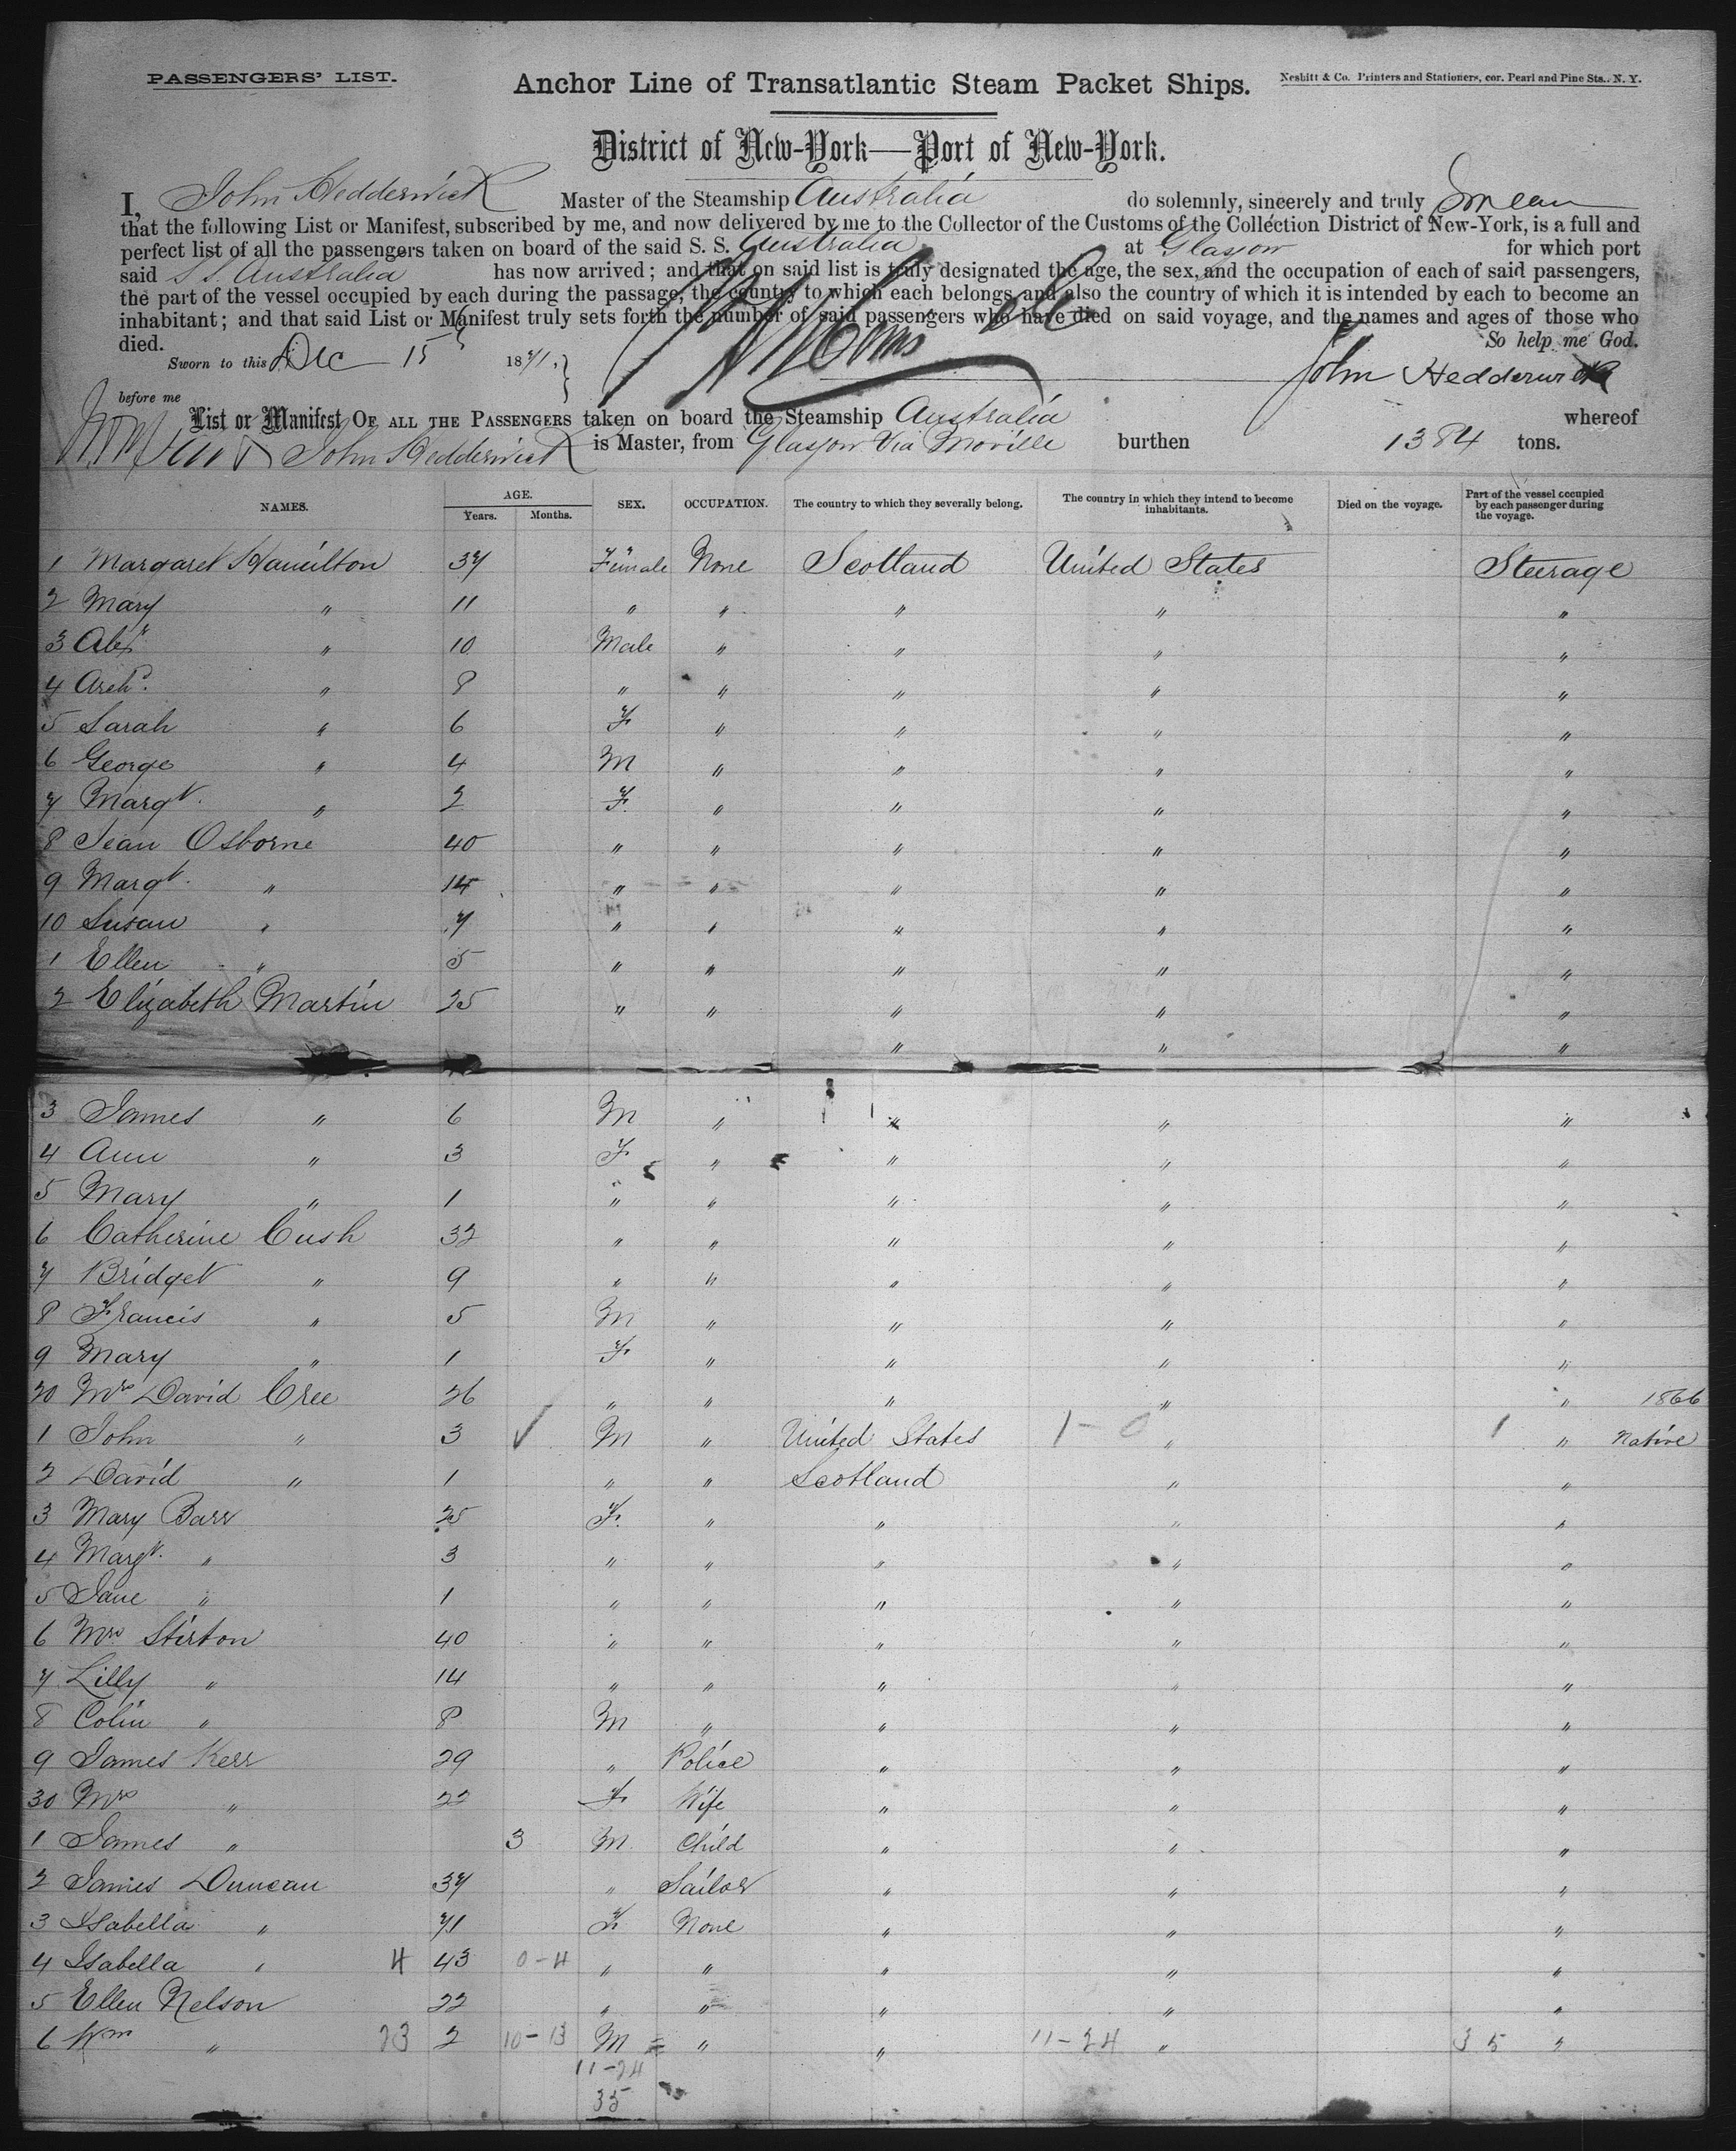 PASSENGERS' LIST.
Anchor Line of Transatlantic Steam Packet Ships.
Nesbitt & Co. Printers and Stationers, cor. Pearl and Pine Sts., N. Y.
District of New-York—Port of New-York.
I, John Hedderwick Master of the Steamship Australia do solemnly, sincerely and truly Swear
that the following List or Manifest, subscribed by me, and now delivered by me to the Collector of the Customs of the Collection District of New-York, is a full and
perfect list of all the passengers taken on board of the said S. S. Australia at Glasgow for which port
said S S Australia has now arrived; and that on said list is truly designated the age, the sex, and the occupation of each of said passengers,
the part of the vessel occupied by each during the passage, the country to which each belongs, and also the country of which it is intended by each to become an
inhabitant; and that said List or Manifest truly sets forth the number of said passengers who have died on said voyage, and the names and ages of those who
died. So help me God.
Sworn to this Dec 15 1871. John Hedderwick
before me
List or Manifest OF ALL THE PASSENGERS taken on board the Steamship Australia whereof
John Hedderwick is Master, from Glasgow Via Moville burthen 1384 tons.
NAMES. AGE. Years. Months. SEX. OCCUPATION. The country to which they severally belong. The country in which they intend to become inhabitants. Died on the voyage. Part of the vessel occupied by each passenger during the voyage.
1 Margaret Hamilton 37 Female None Scotland United States Steerage
2 Mary " 11 " " " " "
3 Alexr " 10 Male " " " "
4 Archd. " 8 " " " " "
5 Sarah " 6 F " " " "
6 George " 4 M " " " "
7 Margt. " 2 F. " " " "
8 Jean Osborne 40 " " " " "
9 Margt. " 14 " " " " "
10 Susan " 7 " " " " "
1 Ellen " 5 " " " " "
2 Elizabeth Martin 25 " " " " "
" " "
3 James " 6 M " " " "
4 Ann " 3 F " " " "
5 Mary " 1 " " " " "
6 Catherine Cush 32 " " " " "
7 Bridget " 9 " " " " "
8 Francis " 5 M " " " "
9 Mary " 1 F " " " "
20 Mrs David Cree 26 " " " " " 1866
1 John " 3 ✓ M " United States 1-0 " 1 " Native
2 David " 1 " " Scotland " "
3 Mary Barr 25 F. " " " "
4 Margt. " 3 " " " " "
5 Jane " 1 " " " " "
6 Mrs. Stirton 40 " " " " "
7 Lilly " 14 " " " " "
8 Colin " 8 M " " " "
9 James Kerr 29 " Police " " "
30 Mrs " 22 F Wife " " "
1 James " 3 M. Child " " "
2 James Duncan 37 " Sailor " " "
3 Isabella " 71 F None " " "
4 Isabella " 4 43 0-4 " " " " "
5 Ellen Nelson 22 " " " " "
6 Wm " 23 2 10-13 M " " 11-24 " 35 "
11-24
35